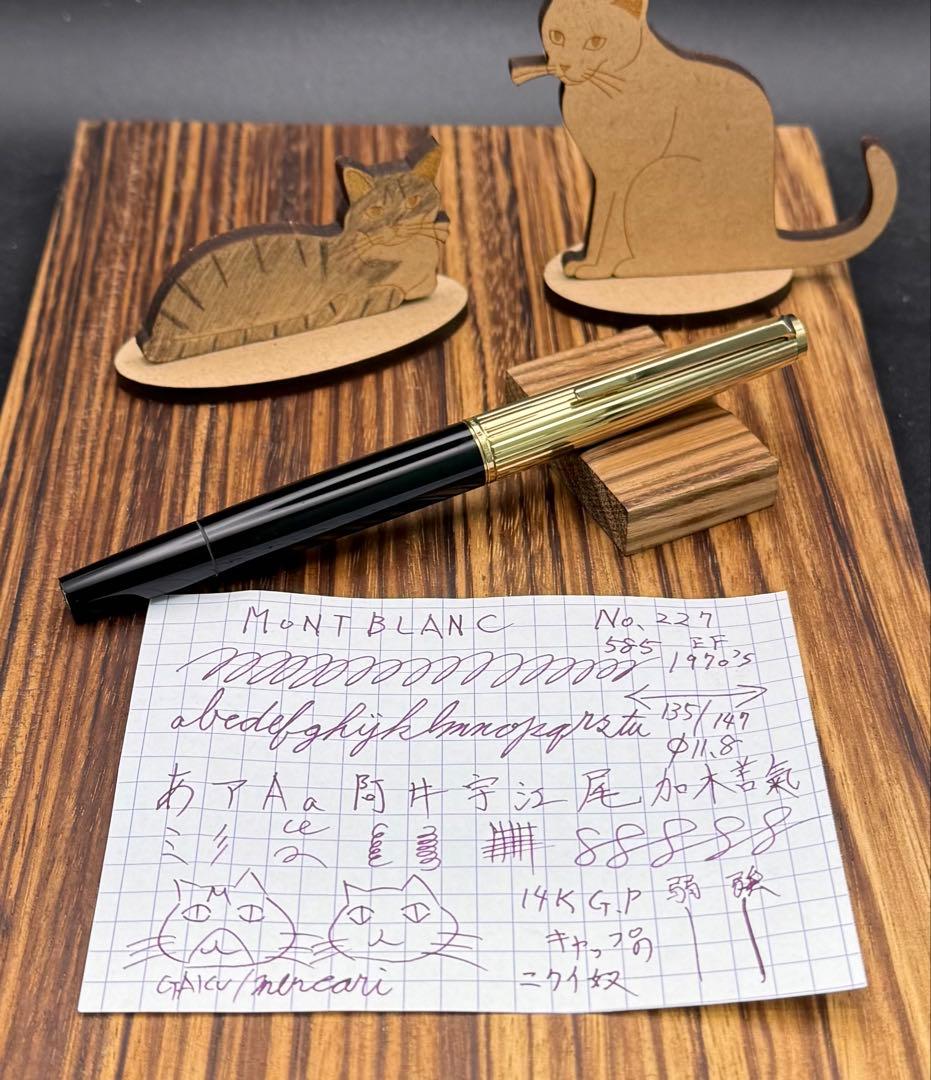 MONTBLANC No. 227
585 EF
1970's
abcdefghijklmnopqrstu 135/147
φ11.8
あ ア A a 阿 井 宇 江 尾 加 木 善 氣
14K G.P 弱 強
キャップの
ニクイ奴
GAKU/mercari